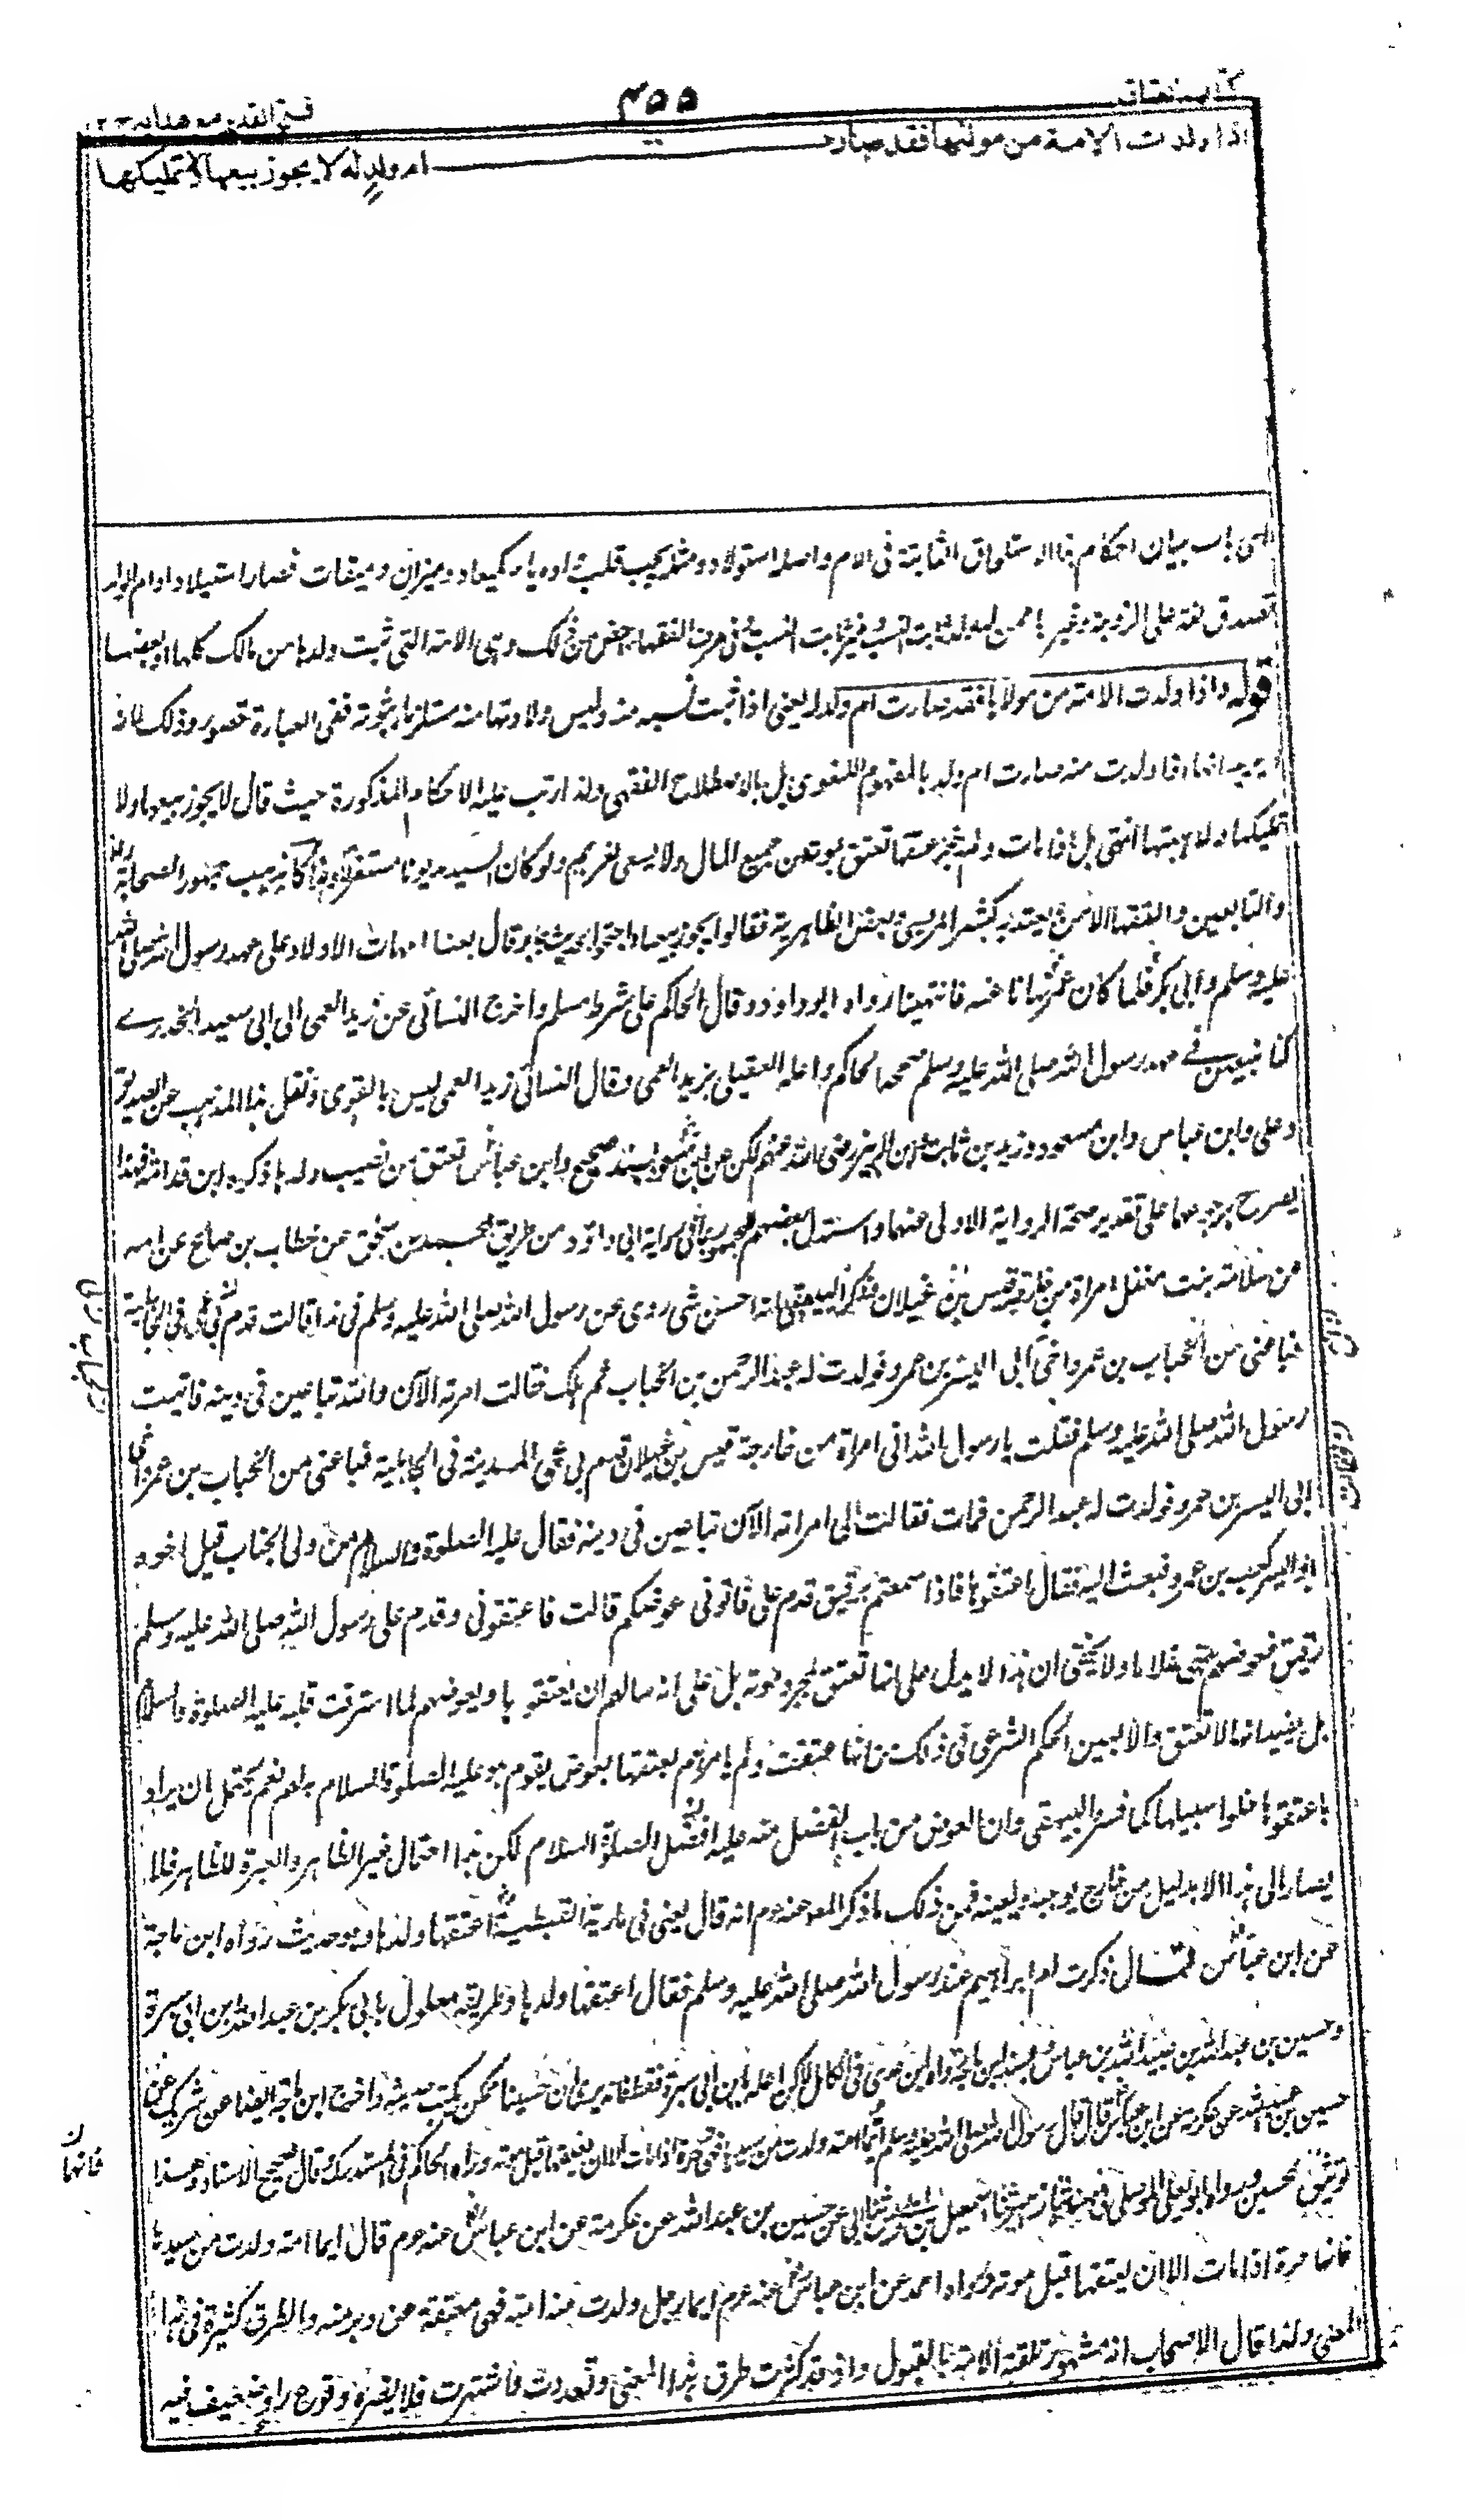 كتاب العتاق
٤٥٥
فتح القدير مع هدايه ج ٢
اذا ولدت الامة من مولىها فقد صارت
ام ولد له لا يجوز بيعها ولا تمليكها
باب بيان احكام الاستحقاق الثابتة فى الام واصله استولاد ومثله يجب قلب واوه ياء كميعاد وميزان وميقات فصار استيلاد او ام الولد
تصدق لغة على الزوجة وغيرها ممن لها ولد ثابت النسب وغير ثابت النسب وفى عرف الفقهاء اخص من ذلك وهى الامة التى ثبت ولدها من مالك كلها او بعضها
قوله واذا ولدت الامة من مولاها فقد صارت ام ولد له يعنى اذا ثبت نسبه منه وليس ولادتها منه مستلزما ثبوته ففى العبارة قصور وذلك لانه
انها اذا ولدت منه صارت ام ولد بالمفهوم اللغوى بل بالاصطلاح الفقهى ولذا رتب عليه الاحكام المذكورة حيث قال لا يجوز بيعها ولا
تمليكها ولا هبتها انتهى بل اذا مات ولم ينجز عتقها تعتق بموته من جميع المال ولا يسعى لغريم ولو كان السيد مديونا مستغرقا وهذا مذهب جمهور الصحابة
والتابعين والفقهاء الا من لا يعتد به كبشر المريسى وبعض الظاهرية فقالوا يجوز بيعها واحتجوا بحديث جابر قال بعنا امهات الاولاد على عهد رسول الله صلى الله
عليه وسلم وابى بكر فلما كان عمر نهانا عنه فانتهينا رواه ابو داود وقال الحاكم على شرط مسلم واخرج النسائى عن زيد العمى الى ابى سعيد الخدرى
كنا نبيعهن فى عهد رسول الله صلى الله عليه وسلم صححه الحاكم واعله العقيلى بزيد العمى وقال النسائى زيد العمى ليس بالقوى ونقل هذا المذهب عن الصديق
وعلى وابن عباس وابن مسعود وزيد بن ثابت وابن الزبير رضى الله عنهم لكن عن ابن مسعود بسند صحيح وابن عباس تعتق من نصيب ولدها ذكره ابن قدامة فهذا
يصرح برجوعهما على تقدير صحة الرواية الاولى عنهما واستدل بعضهم للجمهور بما فى رواية ابى داود من طريق محمد بن اسحق عن خطاب بن صالح عن امه
عن سلامة بنت معقل امراة من خارجة قيس بن غيلان وذكر البيهقى انه احسن شئ روى عن رسول الله صلى الله عليه وسلم فى هذا قالت قدم بى عمى فى الجاهلية
فباعنى من الحباب بن عمرو اخى ابى اليسر بن عمرو فولدت له عبد الرحمن بن الحباب ثم هلك فقالت امرته الآن والله تباعين فى دينه فاتيت
رسول الله صلى الله عليه وسلم فقلت يا رسول الله انى امراة من خارجة قيس بن غيلان قدم بى عمى المدينة فى الجاهلية فباعنى من الحباب بن عمرو اخى
ابى اليسر بن عمرو فولدت له عبد الرحمن فمات فقالت لى امراته الآن تباعين فى دينه فقال عليه الصلوة والسلام من ولى الحباب قيل اخوه
ابو اليسر كعب بن عمرو فبعث اليه فقال اعتقوها فاذا سمعتم برقيق قدم على فاتونى عوضكم قالت فاعتقونى وقدم على رسول الله صلى الله عليه وسلم
رقيق فعوضهم منى غلاما ولا يخفى ان هذا لا يدل على انها تعتق بمجرد موته بل على انه سالهم ان يعتقوها ويعوضهم لما استرقت قلبه عليه الصلوة والسلام
بل يفيد انها لا تعتق والا لبين الحكم الشرعى فى ذلك من انها عتقت ولم يامرهم بعتقها بعوض يقوم هو عليه الصلوة والسلام به لهم نعم يحتمل ان يراد
باعتقوها خلوا سبيلها كما فسره البيهقى وان العوض من باب الفضل منه عليه افضل الصلوة والسلام لكن هذا احتمال غير الظاهر والعبرة للظاهر فلا
يصار الى هذا الا بدليل من خارج يوجبه ويعينه فمن ذلك ما ذكر المص عنه عم انه قال يعنى فى مارية القبطية اعتقها ولدها وهو حديث رواه ابن ماجة
عن ابن عباس قال ذكرت ام ابراهيم عند رسول الله صلى الله عليه وسلم فقال اعتقها ولدها وطريقه معلول بابى بكر بن عبد الله بن ابى سبرة
وحسين بن عبد الله بن عبيد الله بن عباس وبسند ابن ماجة رواه ابن عدى فى الكامل لكن اعله بابن ابى سبرة فقط فانه يرى ان حسينا ممن يكتب حديثه واخرج ابن ماجة ايضا عن شريك عن
حسين بن عبد الله عن عكرمة عن ابن عباس قال قال رسول الله صلى الله عليه وسلم ايما امة ولدت من سيدها فهى حرة اذا مات الا ان يعتقها قبل موته ورواه الحاكم فى المستدرك وقال صحيح الاسناد وهذا
توثيق لحسين ورواه ابو يعلى الموصلى فى مسنده حدثنا زهير حدثنا اسمعيل بن ابى اويس حدثنا ابى عن حسين بن عبد الله عن عكرمة عن ابن عباس عنه عم قال ايما امة ولدت من سيدها
فانها حرة اذا مات الا ان يعتقها قبل موته ورواه احمد عن ابن عباس عنه عم ايما رجل ولدت منه امته فهى معتقة عن دبر منه والطرق كثيرة فى هذا
المعنى ولذا قال الاصحاب انه مشهور تلقته الامة بالقبول واذ قد كثرت طرق هذا المعنى وتعددت فاشتهرت فلا يضره وقوع راو ضعيف فيه
فانها